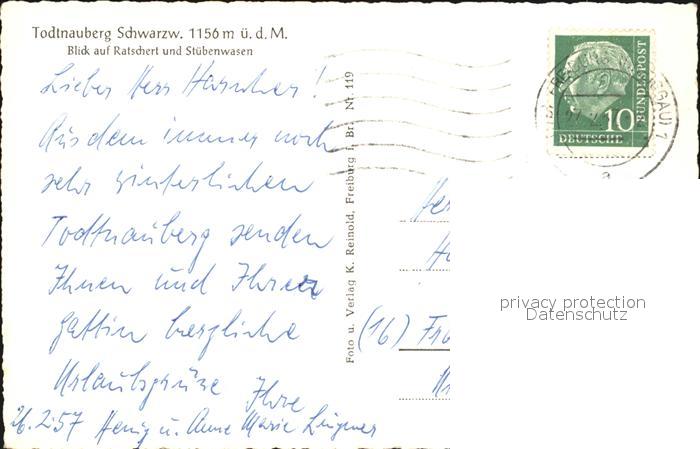 Todtnauberg Schwarzw. 1156 m ü. d. M.
Blick auf Ratschert und Stübenwasen
Lieber Herr
Aus dem immer noch
sehr winterlichen
Todtnauberg senden
Ihnen und Ihrer
Gattin herzliche
Urlaubsgrüße Ihre
26.2.57 Henig u. Anne Marie
Foto u. Verlag K. Reinold, Freiburg i. Br. Nr. 119
10
DEUTSCHE
BUNDESPOST
(16)
privacy protection
Datenschutz